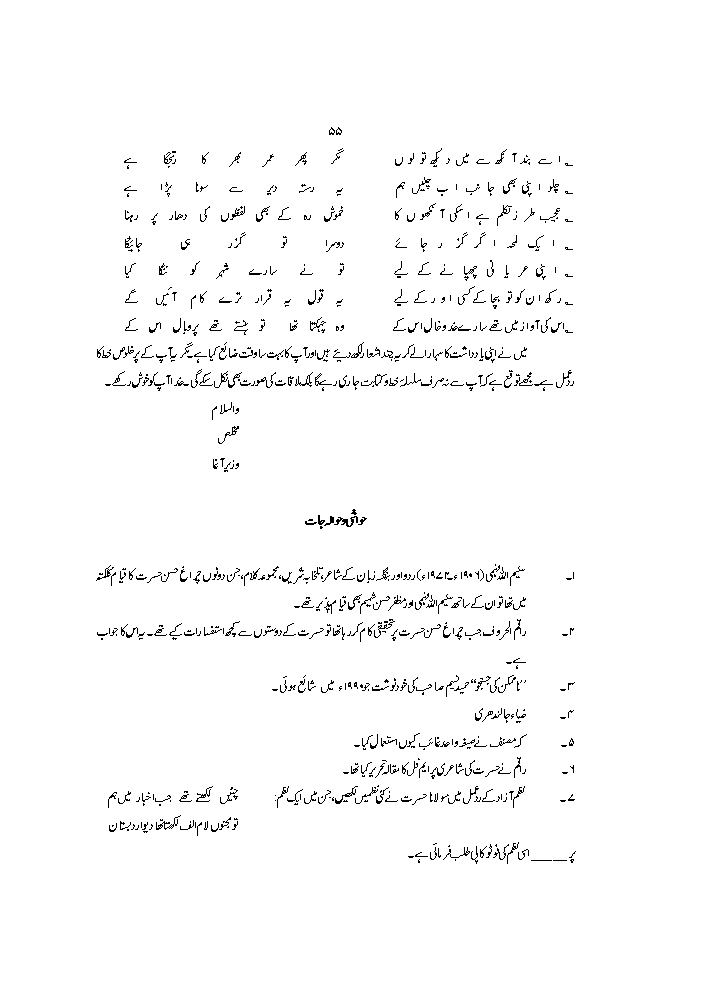 ۵۵
؎ اسے بند آنکھ سے میں دیکھ تو لوں مگر پھر عمر بھر کا رتجگا ہے
؎ چلو اپنی بھی جانب اب چلیں ہم یہ رستہ دیر سے سونا پڑا ہے
؎ عجیب طرزِ تکلم ہے اسکی آنکھوں کا خموش رہ کے بھی لفظوں کی دھار پر رہنا
؎ ایک لمحہ اگر گزر جائے دوسرا تو گزر ہی جائیگا
؎ اپنی عریانی چھپانے کے لیے تو نے سارے شہر کو ننگا کیا
؎ رکھ ان کو تو بچا کے کسی اور کے لیے یہ قول یہ قرار ترے کام آئیں گے
؎ اس کی آواز میں تھے سارے خدوخال اس کے وہ چہکتا تھا تو ہنستے تھے پروبال اس کے
میں نے اپنی یادداشت کا سہارا لے کر یہ چند اشعار لکھ دیئے ہیں اور آپ کا بہت سا وقت ضائع کیا ہے۔ مگر یہ آپ کے پرخلوص خط کا
ردِعمل ہے۔ مجھے توقع ہے کہ آپ سے نہ صرف سلسلۂ خط و کتابت جاری رہے گا بلکہ ملاقات کی صورت بھی نکل سکے گی۔ خدا آپ کو خوش رکھے۔
والسلام
مخلص
وزیر آغا
حواشی و حوالہ جات
۱۔ سلیم اللہ فہمی (۱۹۰۶ء۔۱۹۷۲ء) اردو اور بنگلہ زبان کے شاعر، تلخابہ شریں، مجموعہ کلام، جن دونوں چراغ حسن حسرت کا قیام کلکتہ
میں تھا تو ان کے ساتھ سلیم اللہ فہمی اور مظفر حسن شمیم بھی قیام پذیر تھے۔
۲۔ راقم الحروف جب چراغ حسن حسرت پر تحقیقی کام کر رہا تھا تو حسرت کے دوستوں سے کچھ استفسارات کیے تھے۔ یہ اس کا جواب
ہے۔
۳۔ ’’ناممکن کی جستجو‘‘ حمید نسیم صاحب کی خودنوشت جو ۱۹۹۰ء میں شائع ہوئی۔
۴۔ ضیاء جالندھری
۵۔ کہ مصنف نے صیغہ واحد غائب کیوں استعمال کیا۔
۶۔ راقم نے حسرت کی شاعری پر ایم فل کا مقالہ تحریر کیا تھا۔
۷۔ نظم آزاد کے ردعمل میں مولانا حسرت نے کئی نظمیں لکھیں، جن میں ایک نظم: چٹیں لکھتے تھے جب اخبار میں ہم
تو مجنوں لام الف لکھتا تھا دیوار دبستان
پر ــــــــ اسی نظم کی فوٹو کاپی طلب فرمائی ہے۔